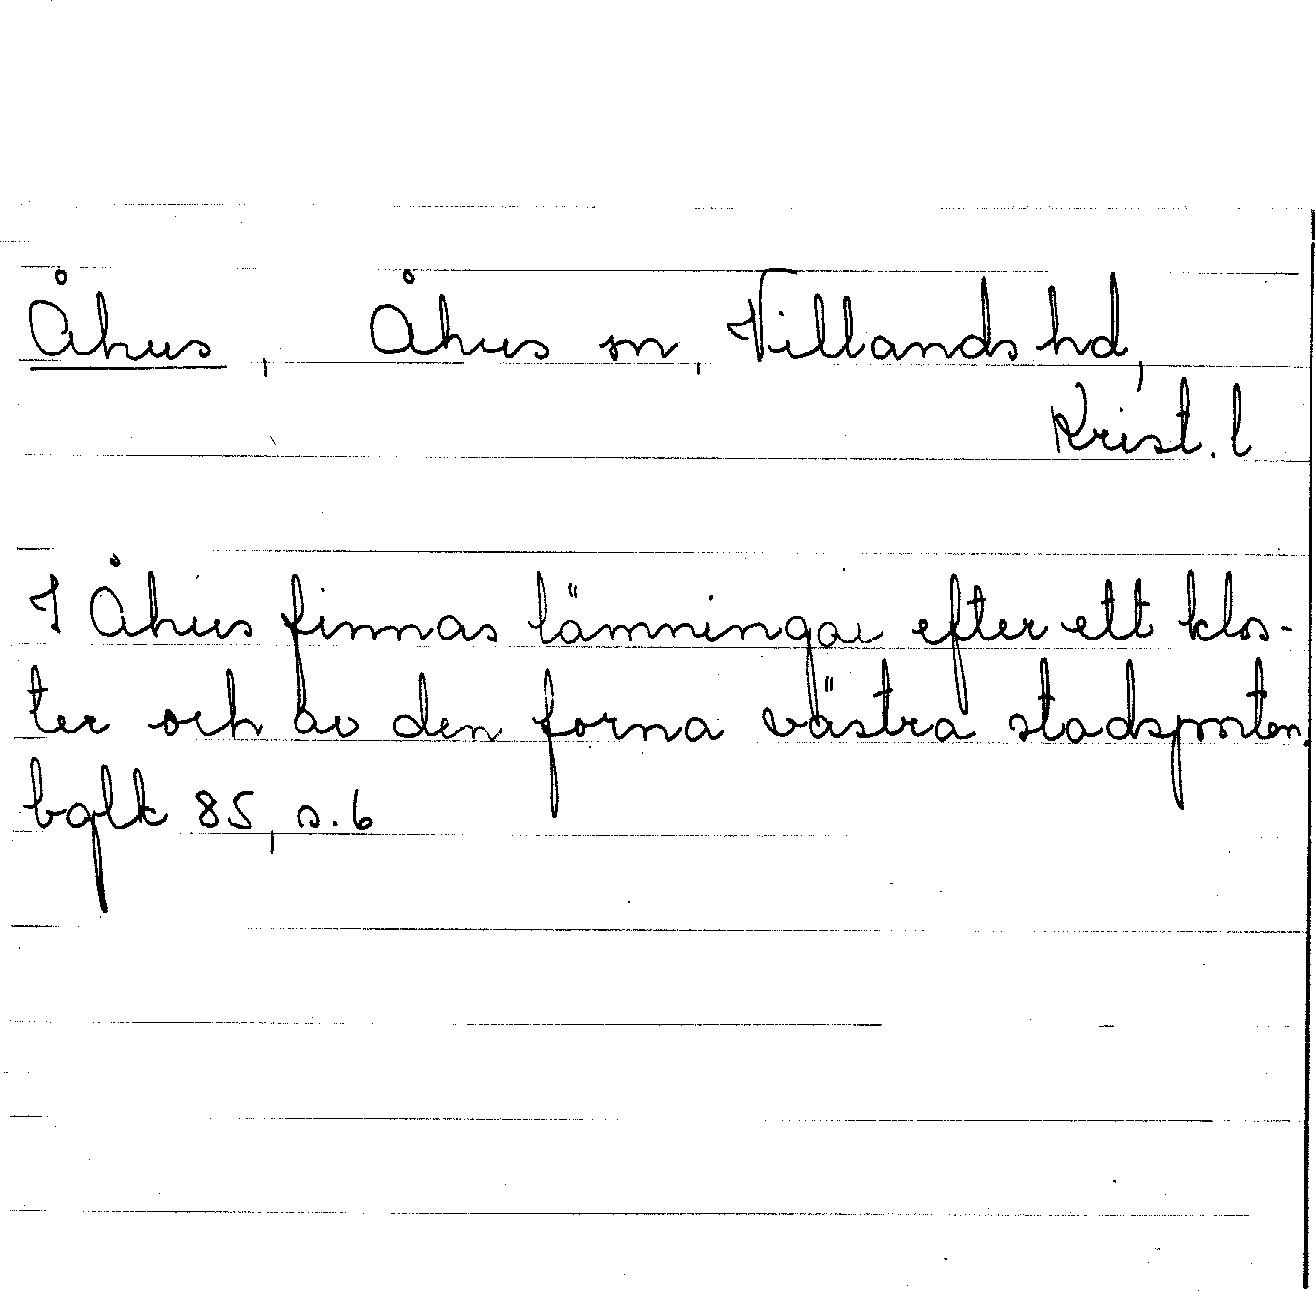 Åhus, Åhus sn, Villands hd,
Krist. l
I Åhus finnas lämningar efter ett klos-
ter och av den forna västra stadsporten.
bglk 85, s. 6